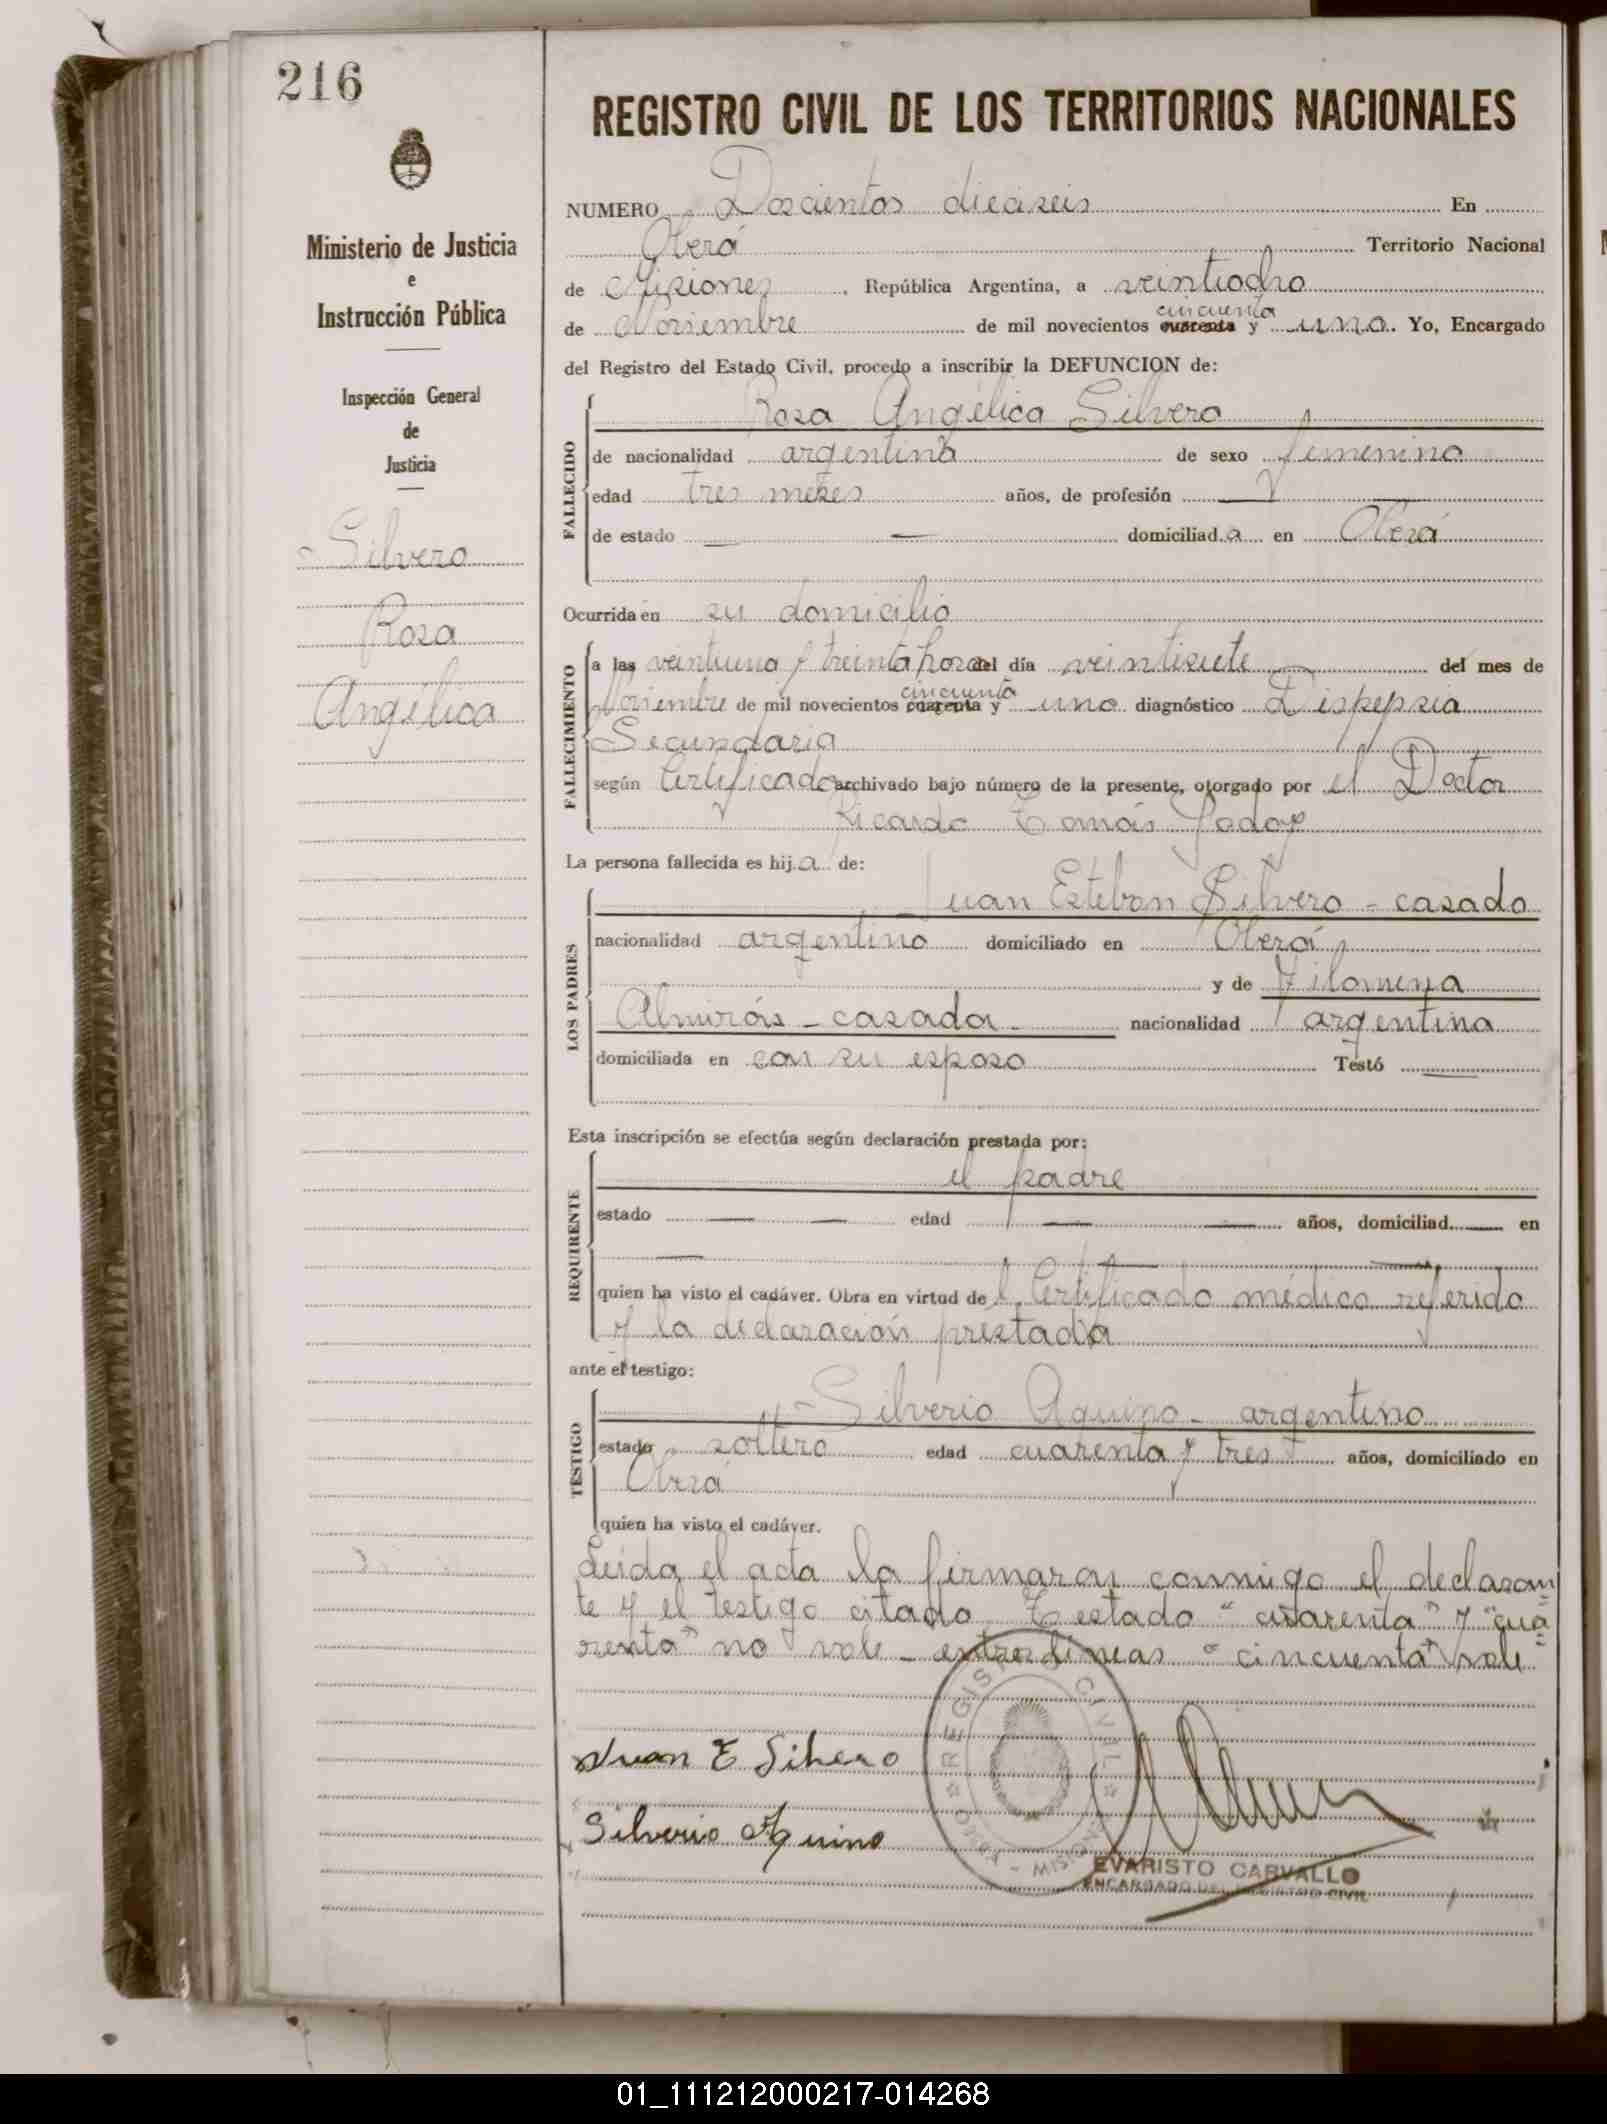 216
Ministerio de Justicia
e
Instrucción Pública
Inspección General
de
Justicia
Silvero
Rosa
Angélica
REGISTRO CIVIL DE LOS TERRITORIOS NACIONALES
NUMERO Doscientos dieciseis En
Oberá Territorio Nacional
de Misiones, República Argentina, a veintiocho
cincuenta
de Noviembre de mil novecientos cuarenta y uno. Yo, Encargado
del Registro del Estado Civil, procedo a inscribir la DEFUNCION de:
FALLECIDO
Rosa Angélica Silvero
de nacionalidad argentina de sexo femenino
edad tres meses años, de profesión —
de estado — — domiciliada en Oberá
Ocurrida en su domicilio
FALLECIMIENTO
a las veintiuna y treinta horas del día veintisiete del mes de
cincuenta
Noviembre de mil novecientos cuarenta y uno diagnóstico Dispepsia
Secundaria
según Certificado archivado bajo número de la presente, otorgado por el Doctor
Ricardo Tomás Godoy
La persona fallecida es hija de:
LOS PADRES
Juan Esteban Silvero - casado
nacionalidad argentino domiciliado en Oberá
y de Filomena
Almirás - casada - nacionalidad argentina
domiciliada en con su esposo Testó —
Esta inscripción se efectúa según declaración prestada por:
REQUIRENTE
el padre
estado — — edad — — años, domiciliad — en
— — —
quien ha visto el cadáver. Obra en virtud del Certificado médico referido
y la declaración prestada
ante el testigo:
TESTIGO
Silverio Aquino - argentino
estado soltero edad cuarenta y tres años, domiciliado en
Oberá
quien ha visto el cadáver.
Leida el acta la firmaron conmigo el declaran
te y el testigo citado Testado "cuarenta" y "cua
renta" no vale - entrelineas "cincuenta" vale
Juan E Silvero
Silverio Aquino
REGISTRO CIVIL
MISIONES
EVARISTO CARVALLO
ENCARGADO DEL REGISTRO CIVIL
01_111212000217-014268